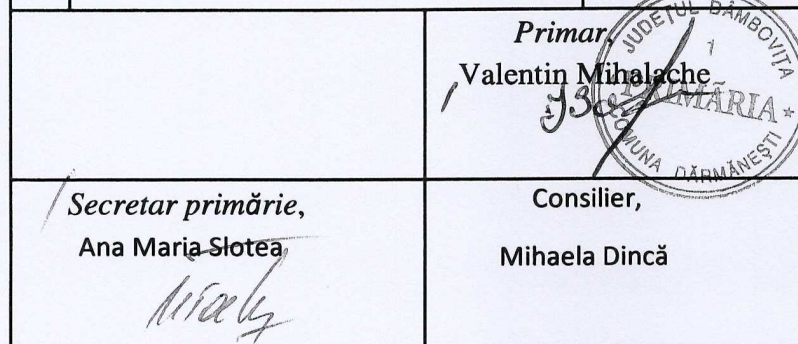 Primar,
Valentin Mihalache
JUDEŢUL DÂMBOVIŢA
1
PRIMĂRIA *
COMUNA DĂRMĂNEŞTI
Secretar primărie,
Ana Maria Slotea
Consilier,
Mihaela Dincă